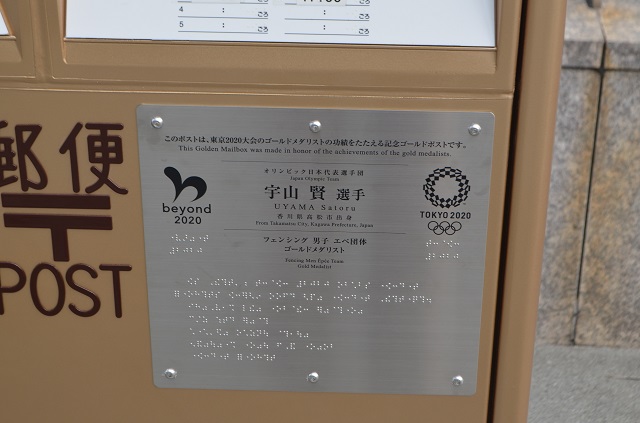 4 : ごろ : ごろ
5 : ごろ : ごろ
郵便
〒
POST
このポストは、東京2020大会のゴールドメダリストの功績をたたえる記念ゴールドポストです。
This Golden Mailbox was made in honor of the achievements of the gold medalists.
beyond
2020
オリンピック日本代表選手団
Japan Olympic Team
宇山 賢 選手
UYAMA Satoru
香川県高松市出身
From Takamatsu City, Kagawa Prefecture, Japan
フェンシング 男子 エペ団体
ゴールドメダリスト
Fencing Men Épée Team
Gold Medalist
TOKYO 2020